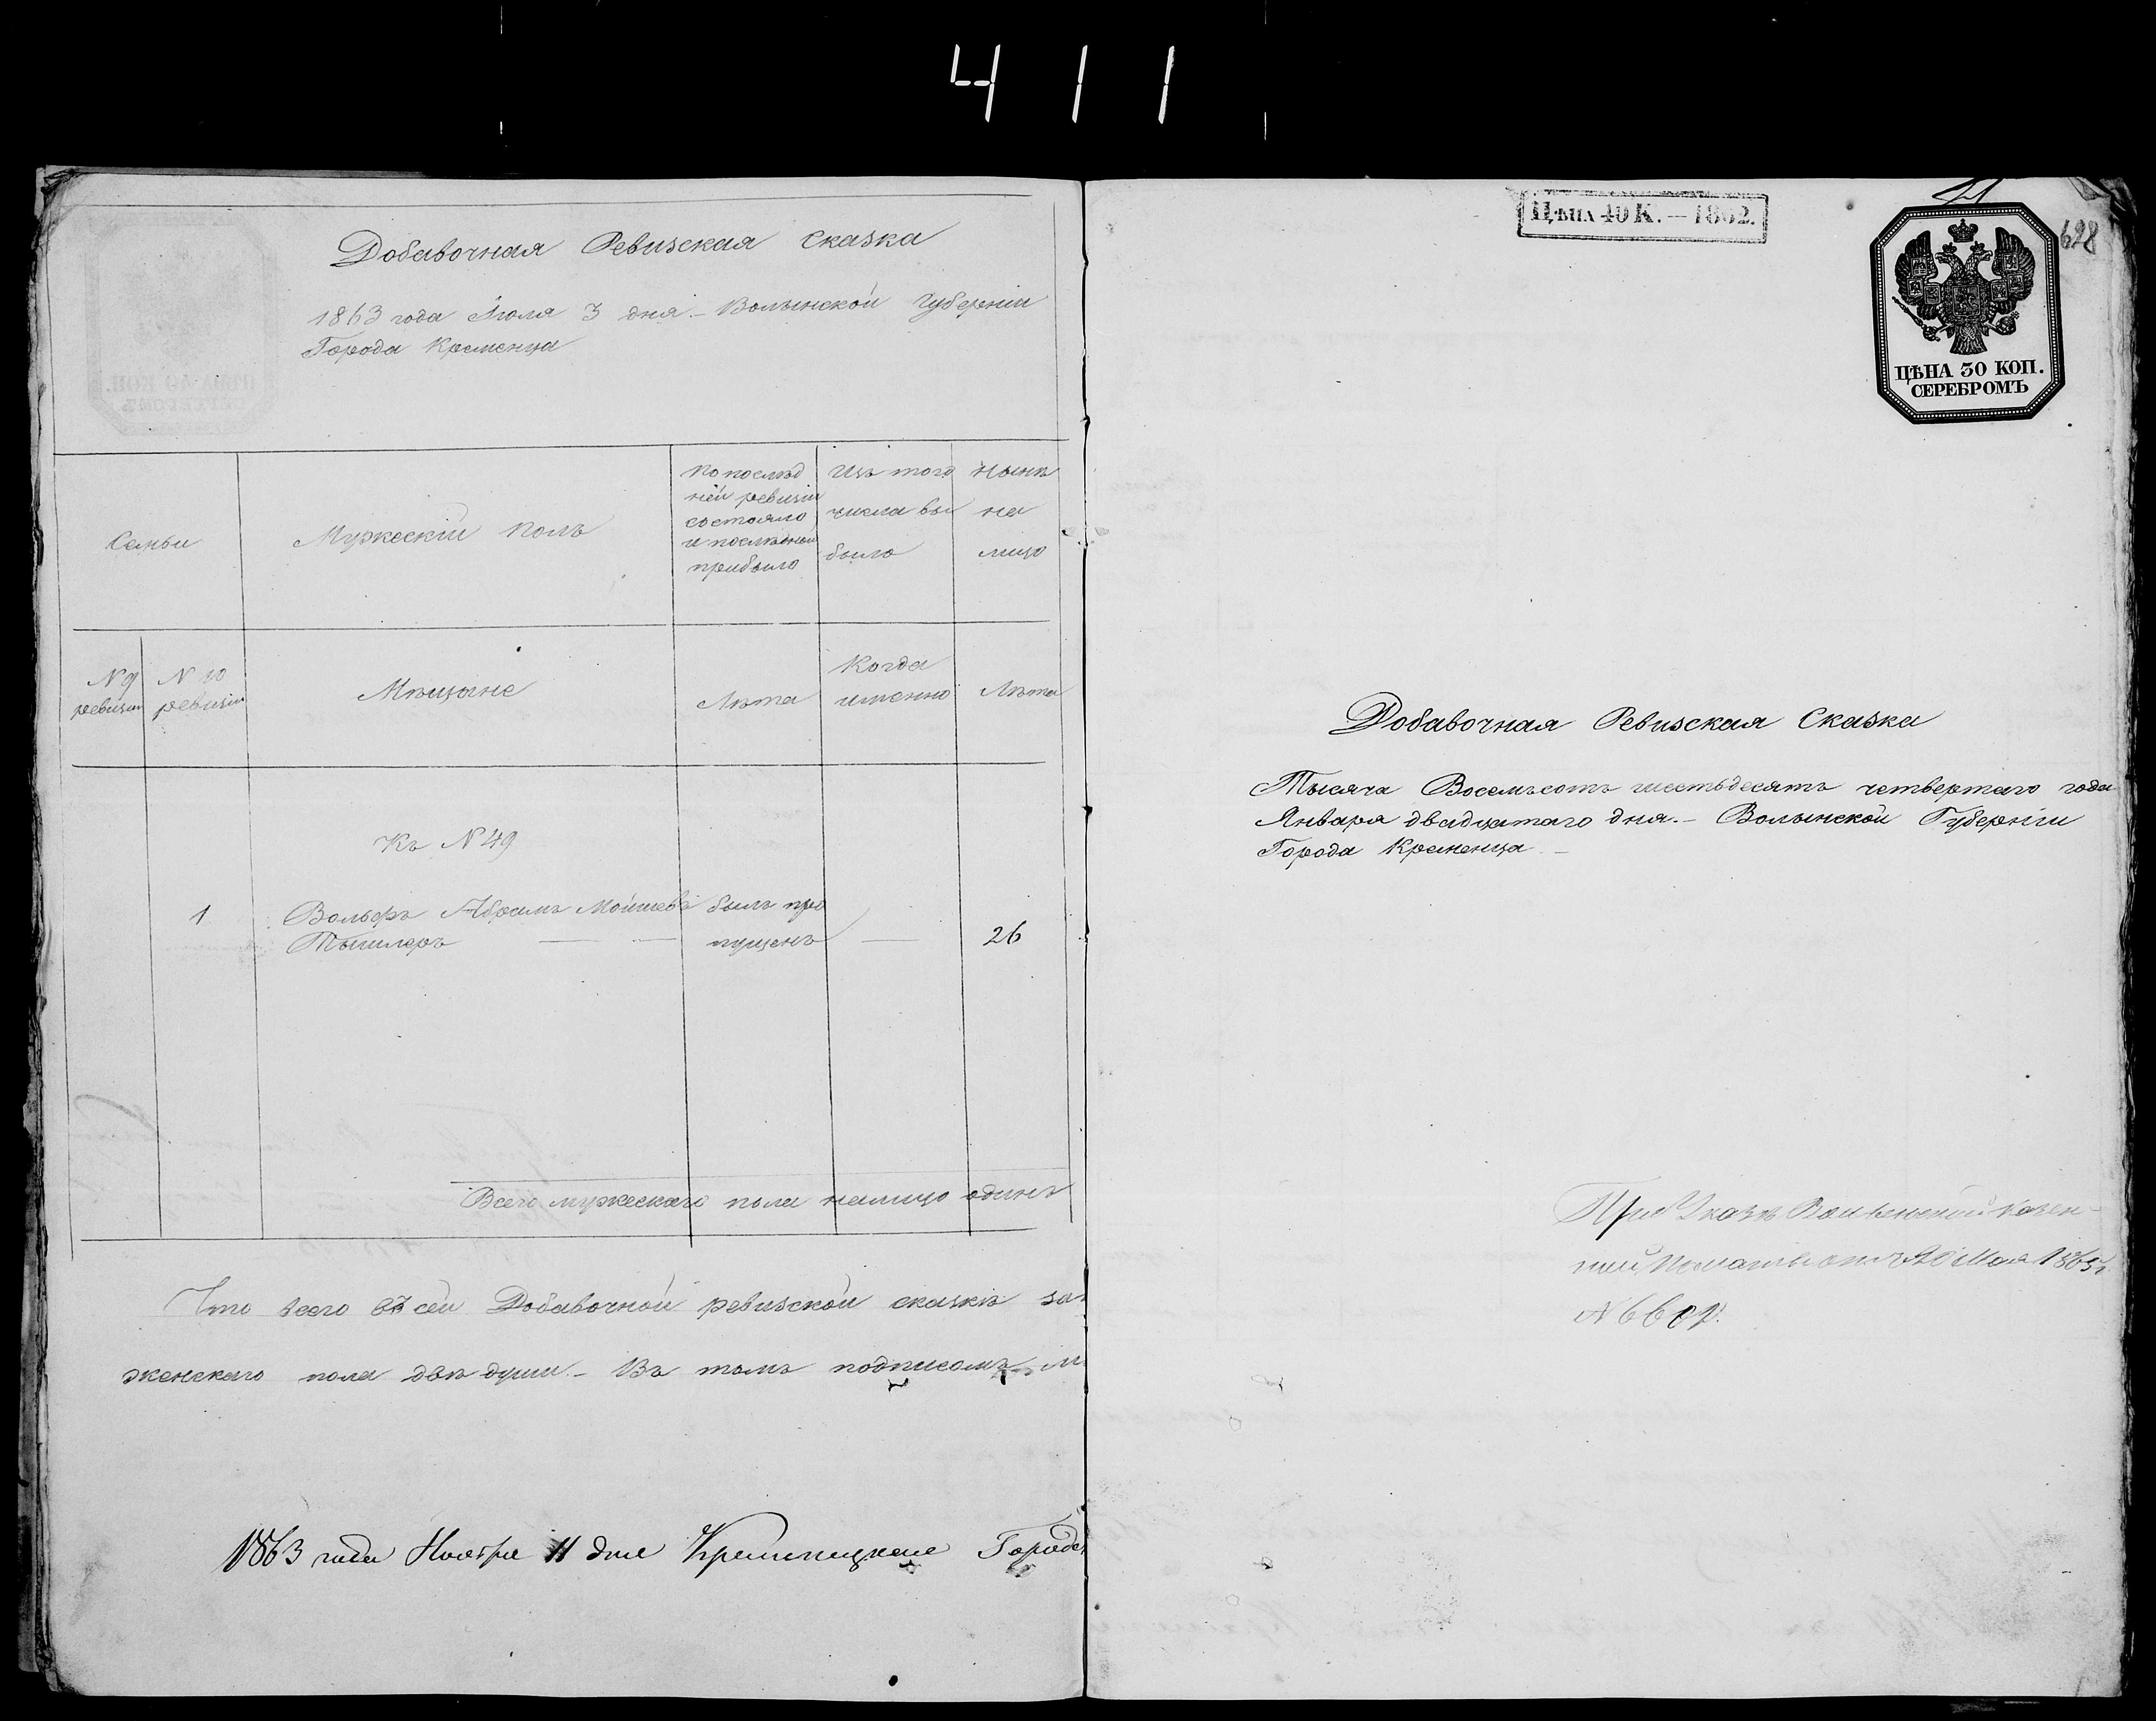 411
Добавочная Ревизская Сказка
1863 года Июля 3 дня.- Волынской Губерніи
Города Кременца
Семьи
Мужескій полъ
По послѣд
ней ревизіи
состояло
и послѣ оной
прибыло
Изъ того
числа вы
было
Нынѣ
на
лицо
N 9
ревизіи
N 10
ревизіи
Мѣщане
Лѣта
Когда
именно
Лѣта
Къ N 49
1
Вольфъ Абрамъ Мойшевъ
Тышлеръ
былъ про
пущенъ
26
Всего мужескаго пола налицо одинъ
Что всего въ сей Добавочной ревизской сказкѣ за
женскаго пола двѣ души.- Въ томъ подписомъ
1863 года Ноября 11 дня Кременецкая Городс
Цѣна 40 К. — 1862.
628
ЦѢНА 30 КОП.
СЕРЕБРОМЪ
Добавочная Ревизская Сказка
Тысяча Восемьсотъ шестьдесятъ четвертаго года
Января двадцатаго дня.- Волынской Губерніи
Города Кременца
При Указѣ Волынской казен-
ной Палаты отъ 20 Мая 1865 г.